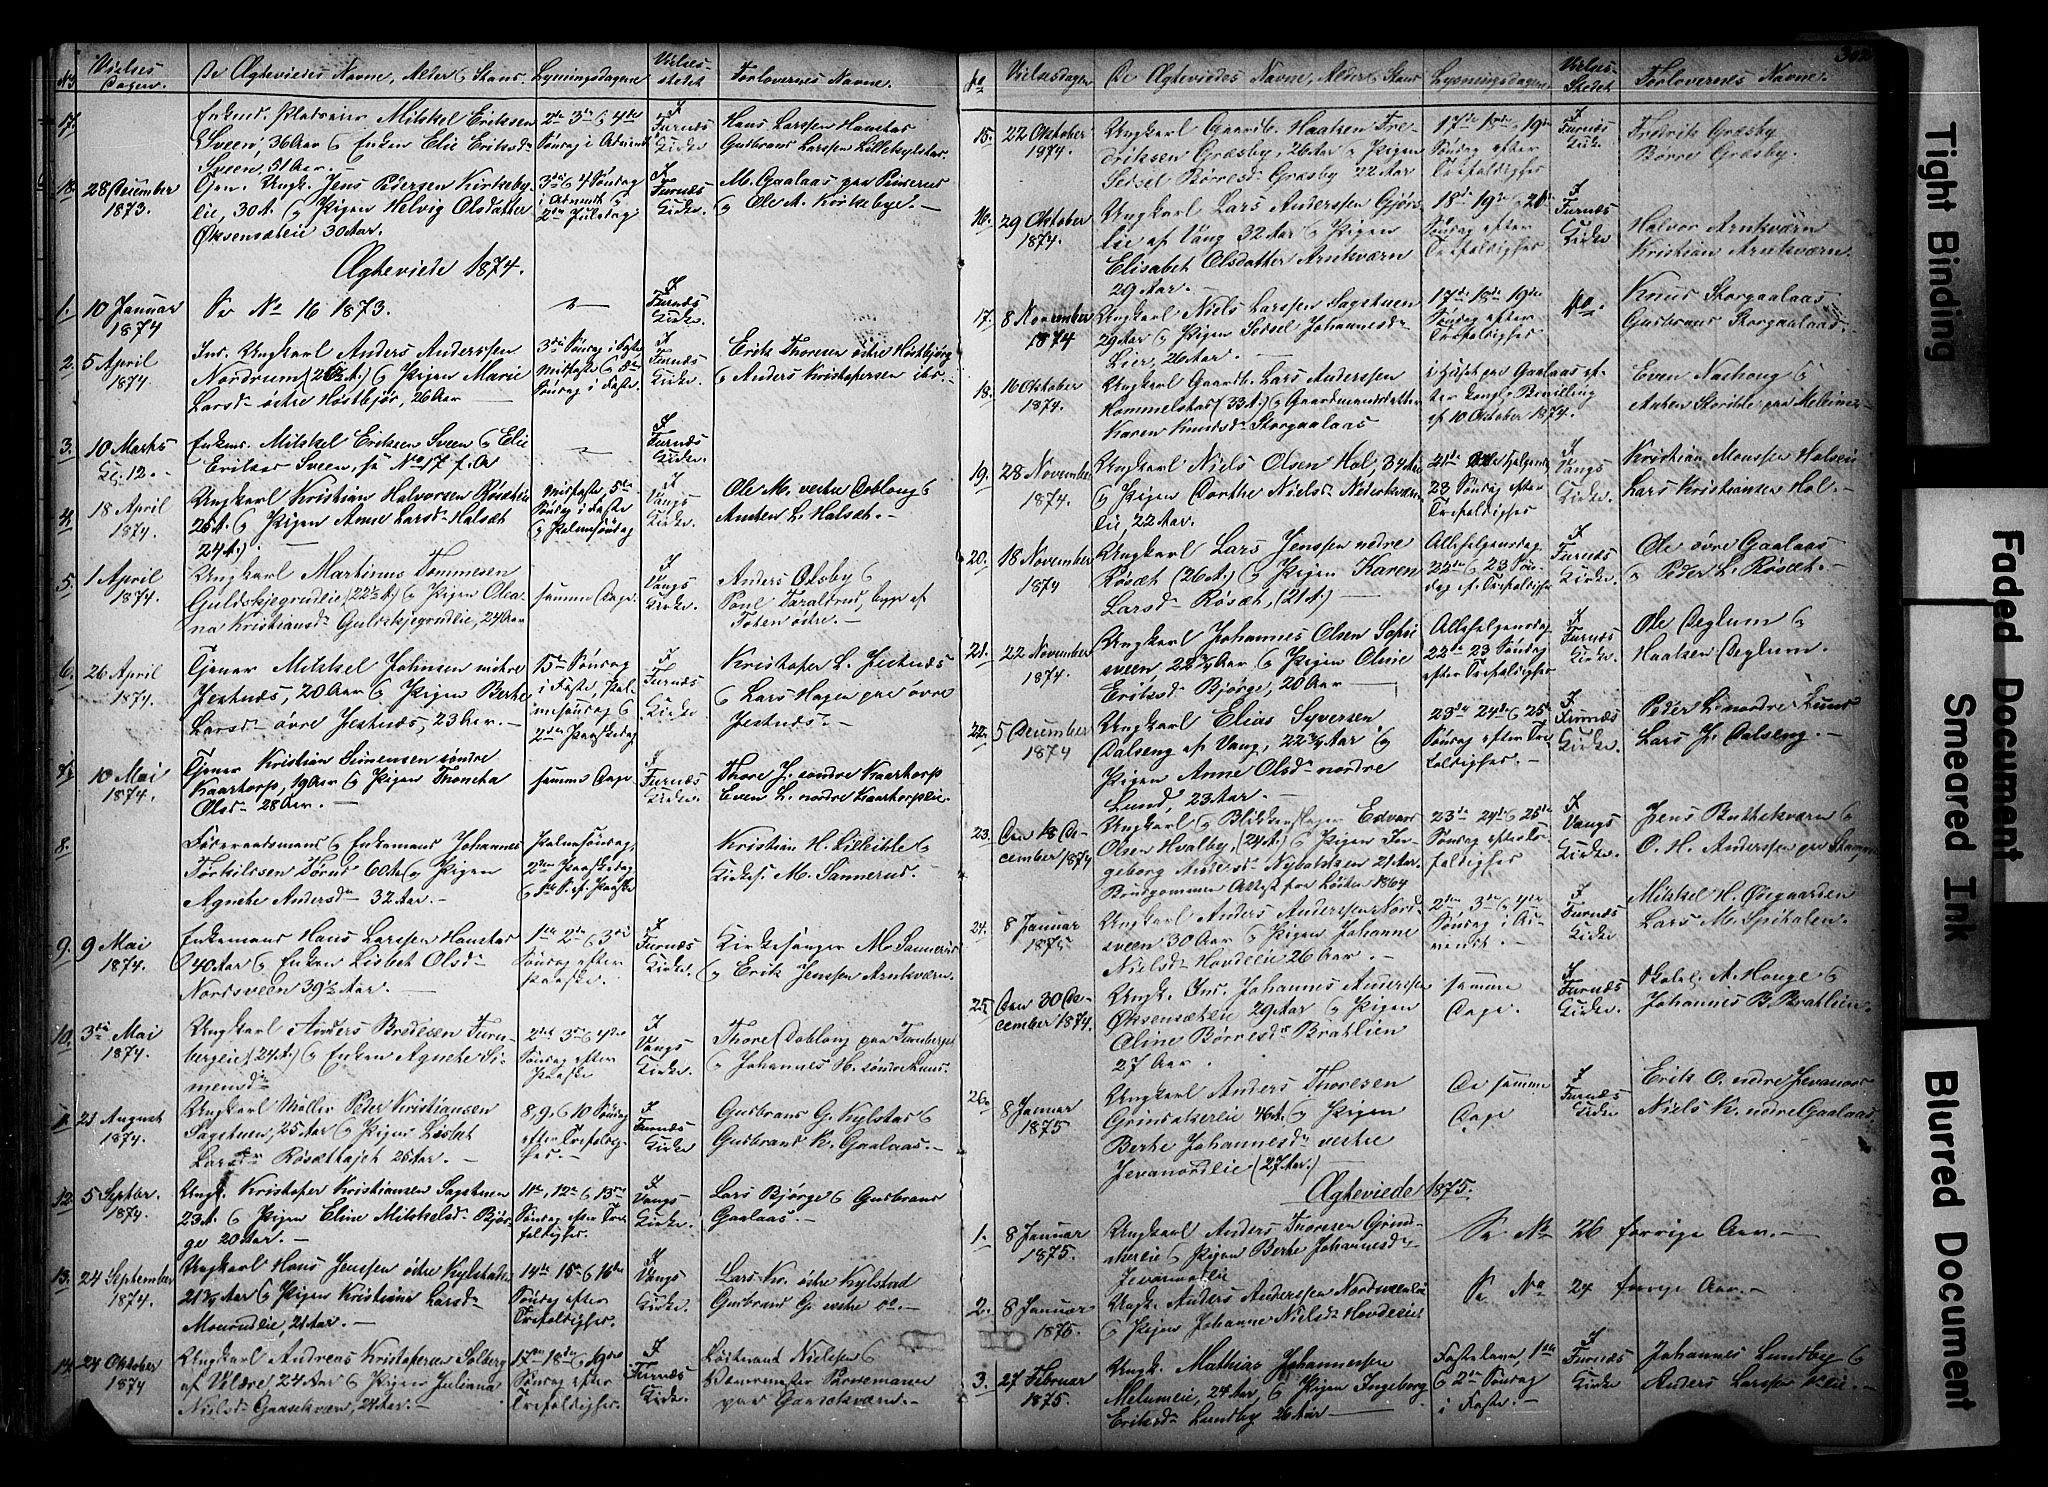 302
No Vielses Dagen. De Ægteviedes Navne, Alder & Stand. Lysningsdagene Vielses-stedet Forlovernes Navne.
17. Enkemd. Pladseier Mikkel Eriksen
Sveen, 36 Aar & Enken Elie Eriksd.
Sveen, 51 Aar.
2de 3de & 4de
Søndag i Advent
I
Furnæs
Kirke
Hans Larssen Hanstad
Gudbrand Larssen Lillekylstad
18. 28 December
1873.
Ungk. Jens Pedersen Kirkeby-
lie, 30 A. & Pigen Helvig Olsdatter
Øksensætlie 30 Aar.
3de & 4 Søndag
i Advent &
2den Juledag
I
Furnæs
Kirke
M. Gaalaas paa
& Ole A. Kirkebye. —
Ægteviede 1874.
1. 10 Januar
1874
Se No 16 1873.
I
Furnæs
Kirke.
2. 5 April
1874.
Ungkarl Anders Anderssen
Nordrum & Pigen Marie
Larsd. østre Høstbjør, 26 Aar
3de Søndag i Faste,
Midfaste &
Søndag i Faste.
I
Furnæs
Kirke.
Erik Thoresen østre Høstbjørg
& Anders Kristofersen ibd. —
3. 10 Marts
Kl. 12. —
Enkem. Mikkel Eriksen Sveen & Elie
Eriksd. Sveen, se No 17 f. A.
I
Furnæs
Kirke.
4. 18 April
1874.
Ungkarl Kristian Halvorsen Røsetlie
25 A. & Pigen Anne Larsd. Halsæt
24 A.
Midfaste, 5te
Søndag i Faste
& Palmesøndag
I
Vangs
Kirke
Ole M. vestre Doblong &
Anton L. Halsæt. —
5. 1 April
1874.
Ungkarl Martinus Tommesen
Guldskjegrudlie (22½ A.) & Pigen Olea-
na Kristiansd. Guldskjegrudlie, 24 Aar
samme Dage.
I
Vangs
Kirke.
Anders Olsby &
Poul Taraldrud, begge af
Toten østre. —
6. 26 April
1874.
Tjener Mikkel Johnsen
Jestnæs, 20 Aar & Pigen Berthe
Larsd. øvre Jestnæs, 23 Aar. —
5te Søndag
i Faste, Pal-
mesøndag &
2den Paaskedag
I
Furnæs
Kirke.
Kristofer L. Jestnæs
& Lars Hagen paa øvre
Jestnæs. —
7. 10 Mai
1874.
Tjener Kristian Simensen søndre
Kaartorp, 19 Aar & Pigen Thonetta
Olsd. 28 Aar.
samme Dage
I
Furnæs
Kirke.
Thore J. søndre Kaartorp
Even L. nordre Kaartorplie
8.
Føderaadsmand & Enkemand Johannes
Torkilssen 60 A. & Pigen
Agnethe Andersd. 32 Aar. —
Palmesøndag,
2den Paaskedag
& 1ste S. ef. Paaske
Kristian H. Lilleihle &
Kirkes. M. Sannerud. —
9. 9 Mai
1874.
Enkemand Hans Larssen Hanstad
40 Aar & Enken Lisbet Olsd.
Nordsveen 39½ Aar.
1ste 2de & 3de
Søndag efter
Paaske
I
Furnæs
Kirke
Kirkesanger M. Sannerud
& Erik Jenssen Arnkværn.
10. 3de Mai
1874.
Ungkarl Anders Bredesen Furu-
bergeie (24 A.) & Enken Agnethe Si-
mensd.
2de 3de & 4de
Søndag efter
Paaske
I
Vangs
Kirke.
Thore Doblong paa Furuberget
& Johannes H. søndre Lund.
11. 21 August
1874.
Ungkarl Møller Peder Kristiansen
Sagstuen, 25 Aar & Pigen Lisbet
Larsd. Røsæthajet 25 Aar.
8, 9, & 10 Søndag
efter Trefoldig-
hed.
I
Furnæs
Kirke
Gudbrand G. Kylstad &
Gudbrand K. Gaalaas. —
12. 5 Septbr.
1874.
Ungk. Kristofer Kristiansen Sagstuen
23 A. & Pigen Eline Mikkelsd. Bjør-
ge 20 Aar.
11te, 12te & 13de
Søndag efter Tre-
foldighed.
I
Vangs
Kirke.
Lars Bjørge & Gudbrand
Gaalaas. —
13. 24 September
1874.
Ungkarl Hans Jenssen østre Kylstadlie
21½ Aar & Pigen Kristiane Larsd.
21 Aar. —
14de 15de & 16de
Søndag efter
Trefoldighed.
I
Vangs
Kirke.
Lars Kr. østre Kylstad
Gudbrand G. vestre do. —
14. 24 Oktober
1874
Ungkarl Andreas Kristofersen Solberg
af Veldre 24 Aar & Pigen Juliana
Nielsd. Gaasekværn, 21 Aar.
17de 18de & 19de
Søndag efter
Trefoldighed.
I
Furnæs
Kirke.
Løitnant Nielssen &
Vinemester Rosemann
paa Gaasekværn. —
No Vielsesdagen De Ægteviedes Navne, Alder & Stand Lysningsdagene Vielses-Stedet Forlovernes Navne.
15. 22 Oktober
1874.
Ungkarl Gaardb. Haaken Fre-
driksen Græsby, 26 Aar & Pigen
Sedsel Børresd. Græsby 22 Aar
17de 18de & 19de
Søndag efter
Trefoldighed
I
Furnæs
Kirke.
Fredrik Græsby
Børre Græsby.
16. 29 Oktober
1874.
Ungkarl Lars Anderssen Gjørs-
lie af Vang 32 Aar & Pigen
Elisabet Olsdatter Arnkværn
29 Aar. —
18de 19de & 20de
Søndag efter
Trefoldighed
I
Furnæs
Kirke
Halvor Arnkværn
Kristian Arnkværn.
17. 8 November
1874
Ungkarl Niels Larssen Sagstuen
29 Aar & Pigen Sedsel Johannesd.
Lier, 26 Aar.
17de 18de & 19de
Søndag efter
Trefoldighed
do.
Knud Storgaalaas
Gudbrand Storgaalaas.
18. 16 Oktober
1874.
Ungkarl Gaardb. Lars Anderssen
Hommelstad (33 A.) & Gaardmandsdatter
Karen Knudsd. Storgaalaas
i Huset paa Gaalaas ef-
ter Kongl. Bevilling
af 10 Oktober 1874.
Even Nashoug &
Anton Storihle paa
19. 28 November
1874.
Ungkarl Niels Olsen Hol, 34 Aar
& Pigen Dorthe Nielsd. Nederkværn-
lie, 22 Aar.
23 Søndag efter
Trefoldighed
I
Vangs
Kirke.
Kristian Monssen Holseie
Lars Kristiansen Hol —
20. 18 November
1874
Ungkarl Lars Jenssen nedre
Røsæt (26 A.) & Pigen Karen
Larsd. Røsæt, (21 A.)
Allehelgensdag,
22de & 23 Søn-
dag ef. Trefoldighed.
I
Furnæs
Kirke.
Ole øvre Gaalaas
& Peder L. Røsæt. —
21. 22 November
1874.
Ungkarl Johannes Olsen
sveen, 22½ Aar & Pigen Oline
Eriksd. Bjørge, 20 Aar —
Allehelgensdag
22de 23 Søndag
efter Trefoldighed
I
Furnæs
Kirke.
Ole Deglum &
Haaken Deglum.
22. 5 December
1874
Ungkarl Elias Syversen
Dalseng af Vang, 22½ Aar &
Pigen Anne Olsd. nordre
Lund, 23 Aar.
23de 24de & 25de
Søndag efter Tre-
foldighed. —
I
Furnæs
Kirke.
Peder L. nordre Lund
Lars J. Dalseng. —
23. Den 18 De-
cember 1874
Ungkarl & Blikkenslager Edvard
Olsen Hvalby, (24 A.) & Pigen In-
geborg Nybakken 21 Aar.
Brudgommen Attest for Løiten 1864
23de 24de & 25de
Søndag efter Tre-
foldighed
I
Vangs
Kirke.
Jens Bækkekværn &
O. H. Anderssen paa
24. 8 Januar
1875.
Ungkarl Anders Anderssen Nord-
sveen 30 Aar & Pigen Johanne
Nielsd. Hovdelie 26 Aar.
2den, 3de & 4de
Søndag i Ad-
vendt.
I
Furnæs
Kirke
Mikkel H. Ødegaarden
Lars M. Spikdalen.
25. Den 30 De-
cember 1874.
Ungk. Ind. Johannes Anderssen
Øksensætlie 29 Aar & Pigen
Oline Børresd. Bratlien
27 Aar.
samme
Dage.
I
Furnæs
Kirke
A. Houge &
Johannes B. Bratlien.
26. 8 Januar
1875.
Ungkarl Anders Thoresen
Grindakerlie & Pigen
Berthe Johannesd. vestre
Jevanordlie (27 Aar.)
De samme
Dage
I
Furnæs
Kirke
Erik O. nedre Jevanord
Niels K. nedre Gaalaas.
Ægteviede 1875.
1. 8 Januar
1875.
Ungkarl Anders Thoresen Grind-
akerlie & Pigen Berthe Johannesd.
Jevanordlie
Se No 26 forrige Aar. —
2. 8 Januar
1875.
Ungk. Anders Anderssen Nordsveenlie
& Pigen Johanne Nielsd. Hovdelie
Se No 24 forrige Aar. —
3. 27 Februar
1875.
Ungk. Mathias Johannessen
Melumeie, 24 Aar, & Pigen Ingeborg
Eriksd. Lundby 26 Aar
Fastelavn, 1ste
& 2de Søndag
i Faste. —
I
Furnæs
Kirke
Johannes Lundby &
Anders Larssen
Tight Binding
Faded Document
Smeared Ink
Blurred Document